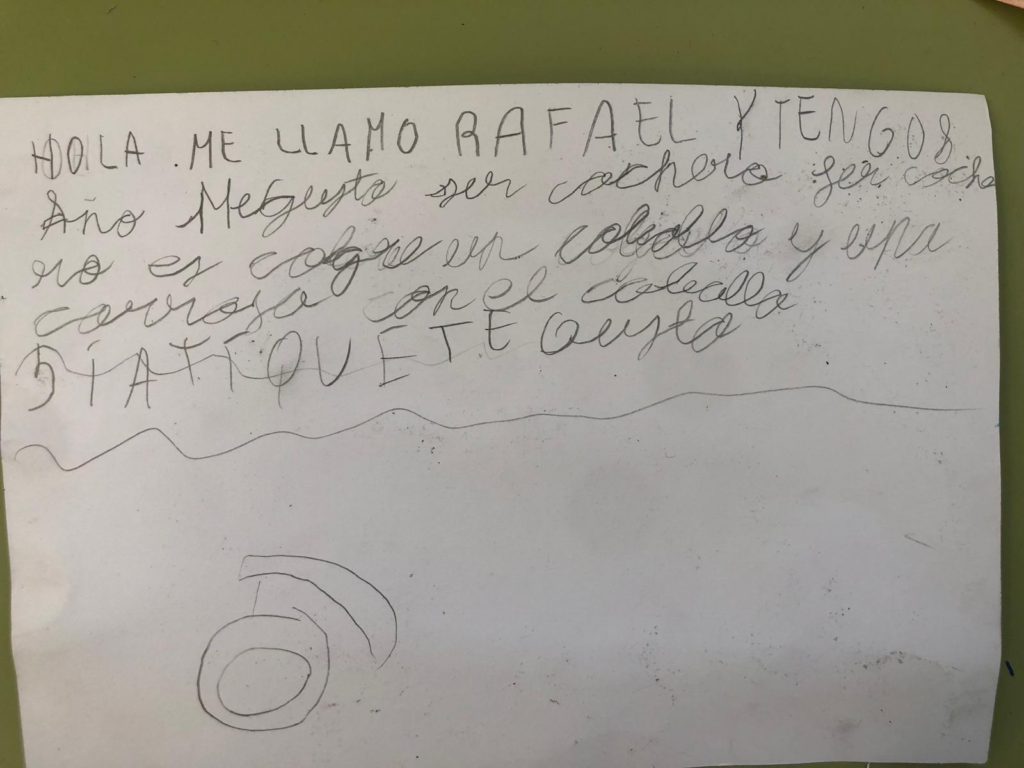 HOLA. ME LLAMO RAFAEL Y TENGO 8
Año Megusto ser cochero ser coche
ro es cogre un caballo y una
carrosa con el caballo
SIATIQUETE Gusto